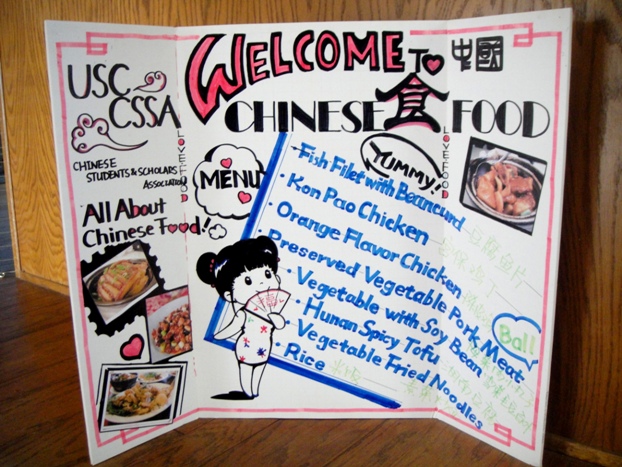 WELCOME TO
中國
CHINESE 食 FOOD
USC
CSSA
CHINESE
STUDENTS & SCHOLARS
ASSOCIATION
LOVE FOOD
All About
Chinese Food!
MENU
YUMMY!
LOVE FOOD
· Fish Filet with Beancurd 豆腐魚片
· Kon Pao Chicken
· Orange Flavor Chicken
· Preserved Vegetable Pork Meat Ball!
· Vegetable with Soy Bean
· Hunan Spicy Tofu
· Vegetable Fried Noodles
· Rice 米饭